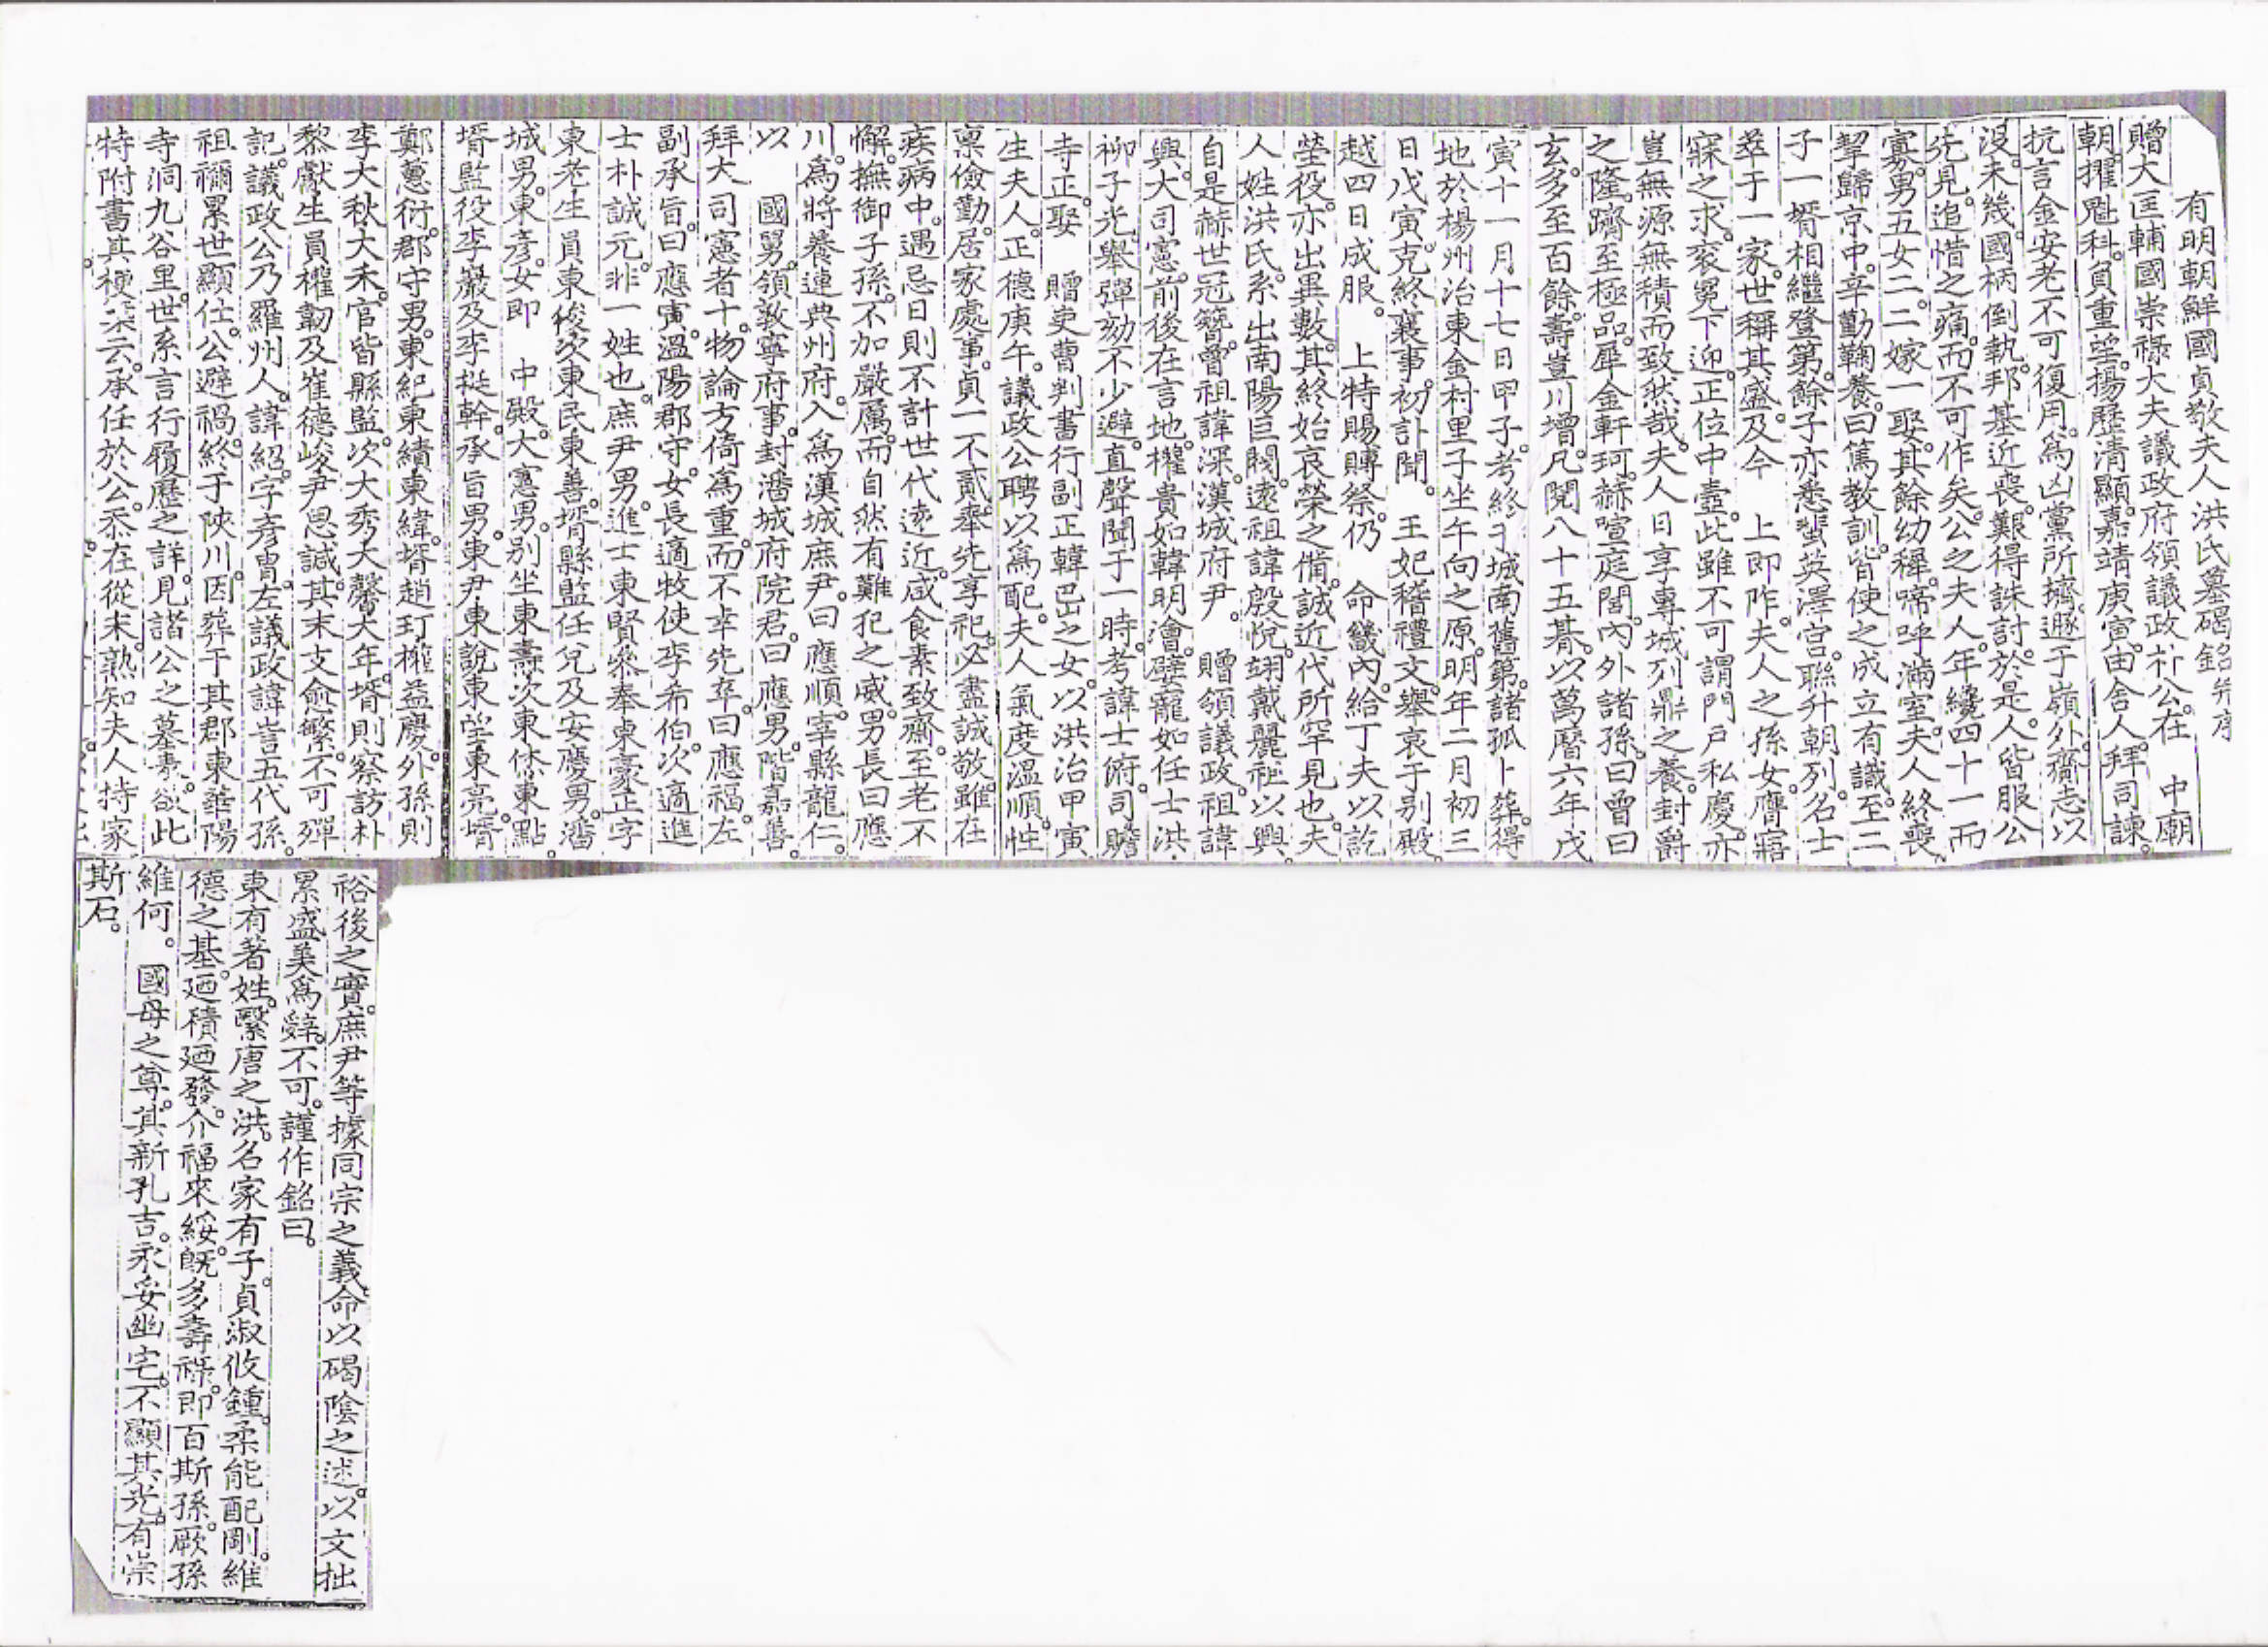 有明朝鮮國貞敬夫人洪氏墓碣銘并序
贈大匡輔國崇祿大夫議政府領議政朴公在 中廟
朝。擢魁科。負重望。揚歷清顯。嘉靖庚寅。由舍人。拜司諫。
抗言金安老不可復用。爲凶黨所擠。遯于嶺外。齎志以
沒。未幾。國柄倒執。邦基近喪。艱得誅討。於是。人皆服公
先見。追惜之痛。而不可作矣。公之夫人。年纔四十一而
寡。男五女二。二嫁一娶。其餘幼穉。啼呼滿室。夫人終喪。
挈歸京中。辛勤鞠養。曰篤教訓。皆使之成立有識。至二
子一壻相繼登第。餘子亦悉蜚英澤宮。聯升朝列。名士
萃于一家。世稱其盛。及今 上卽阼。夫人之孫女。膺寤
寐之求。袞冕下迎。正位中壼。此雖不可謂門戶私慶。亦
豈無源無積而致然哉。夫人日享專城列鼎之養。封爵
之隆。躋至極品。犀金軒珂。赫喧庭閭。內外諸孫。曰曾曰
玄。多至百餘。壽豈川增。凡閱八十五朞。以萬曆六年戊
寅十一月十七日甲子。考終于城南舊第。諸孤卜葬。得
地於楊州治東金村里子坐午向之原。明年二月初三
日戊寅。克終襄事。初訃聞。 王妃稽禮文。舉哀于別殿。
越四日成服。 上特賜賻祭。仍 命畿內。給丁夫以訖
塋役。亦出異數。其終始哀榮之備。誠近代所罕見也。夫
人姓洪氏。系出南陽巨閥。遠祖諱殷悅。翊戴麗祖以興。
自是赫世冠簪。曾祖諱深。漢城府尹。 贈領議政。祖諱
興。大司憲。前後在言地。權貴如韓明澮。嬖寵如任士洪。
柳子光舉彈劾不少避。直聲聞于一時。考諱士俯。司贍
寺正。娶 贈吏曹判書行副正韓巴之女。以洪治甲寅
生夫人。正德庚午。議政公聘以爲配。夫人氣度溫順。性
稟儉勤。居家處事。貞一不貳。奉先享祀。必盡誠敬。雖在
疾病中。遇忌日則不計世代遠近。咸食素致齋。至老不
懈。撫御子孫。不加嚴厲。而自然有難犯之威。男長曰應
川。爲將養連典州府。入爲漢城庶尹。曰應順。宰縣龍仁。
以 國舅。領敦寧府事。封潘城府院君。曰應男。階嘉善。
拜大司憲者十。物論方倚爲重。而不幸先卒。曰應福。左
副承旨。曰應寅。溫陽郡守。女長適牧使李希伯。次適進
士朴誠元。非一姓也。庶尹男。進士東賢。參奉東豪。正字
東老。生員東俊。次東民東善。壻縣監任兌及安慶男。潘
城男。東彥。女卽 中殿。大憲男。別坐東燾。次東烋東點。
壻監役李巖及李挺幹。承旨男。東尹東說東望東亮。壻
鄭蕙衍。郡守男。東紀東續東緯。壻趙玎權益慶。外孫則
李大秋大禾。官皆縣監。次大秀大馨大年。壻則察訪朴
黎獻。生員權韌及崔德峻尹思誠。其末支愈繁。不可殫
記。議政公乃羅州人。諱紹。字彥冑。左議政諱訔五代孫。
祖禰累世顯仕。公避禍。終于陜川。因葬于其郡東華陽
寺洞九谷里。世系言行履歷之詳。見諸公之墓表。欲此
特附書其梗槩云。承任於公。忝在從末。熟知夫人持家
裕後之實。庶尹等據同宗之義。命以碣陰之述。以文拙
累盛美爲辭。不可。謹作銘曰。
東有著姓。繄唐之洪。名家有子。貞淑攸鍾。柔能配剛。維
德之基。廼積廼發。介福來綏。旣多壽祿。卽百斯孫。厥孫
維何。 國母之尊。其新孔吉。永妥幽宅。不顯其光。有崇
斯石。